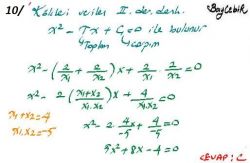 10/ Kökleri verilen II. der. denk.
Baybebik
x² - Tx + Ç = 0 ile bulunur
Toplam çarpım
x² - (2/x₁ + 2/x₂)x + 2/x₁ · 2/x₂ = 0
x² - 2(x₁+x₂/x₁.x₂)x + 4/x₁.x₂ = 0
x₁+x₂=4
x₁.x₂=-5
x² - 2·4x/-5 + 4/-5 = 0
5x² + 8x - 4 = 0
CEVAP: C